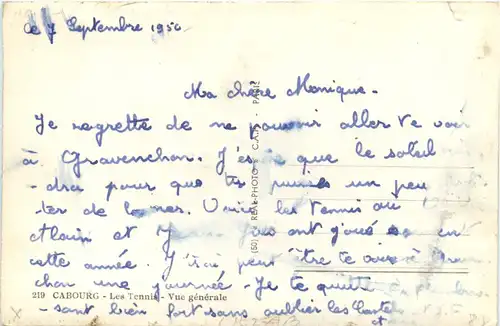 Le 7 Septembre 1950
Ma chère Monique.
Je regrette de ne pouvoir aller te voir
à Gravenchon. J'es que le soleil
-dra pour que tu puisses un peu
-ter de la mer. Voici les tennis où
Alain et ont joué en
cette année. J'irai peut être te voir à Graven
chon une journée - Je te quitte
219 CABOURG - Les Tennis - Vue générale
- sant bien fort sans oublier les
et
REAL-PHOTO - C.A.P. - PARIS